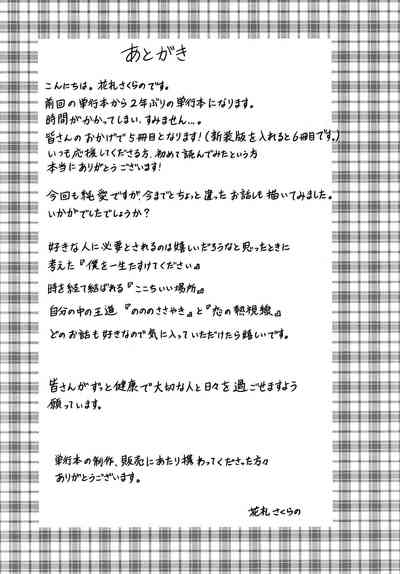 あとがき
こんにちは。花札さくらのです。
前回の単行本から2年ぶりの単行本になります。
時間がかかってしまい、すみません...。
皆さんのおかげで5冊目となります!(新装版を入れると6冊目です。)
いつも応援してくださる方、初めて読んでみたという方
本当にありがとうございます!
今回も純愛ですが、今までとちょっと違ったお話しも描いてみました。
いかがでしたでしょうか?
好きな人に必要とされるのは嬉しいだろうなと思ったときに
考えた『僕を一生たすけてください』
時を経て結ばれる『ここちいい場所』
自分の中の王道 『のののささやき』と『恋の熱視線』
どのお話も好きなので気に入っていただけたら嬉しいです。
皆さんがずっと健康で大切な人と日々を過ごせますよう
願っています。
単行本の制作、販売にあたり携わってくださった方々
ありがとうございます。
花札さくらの